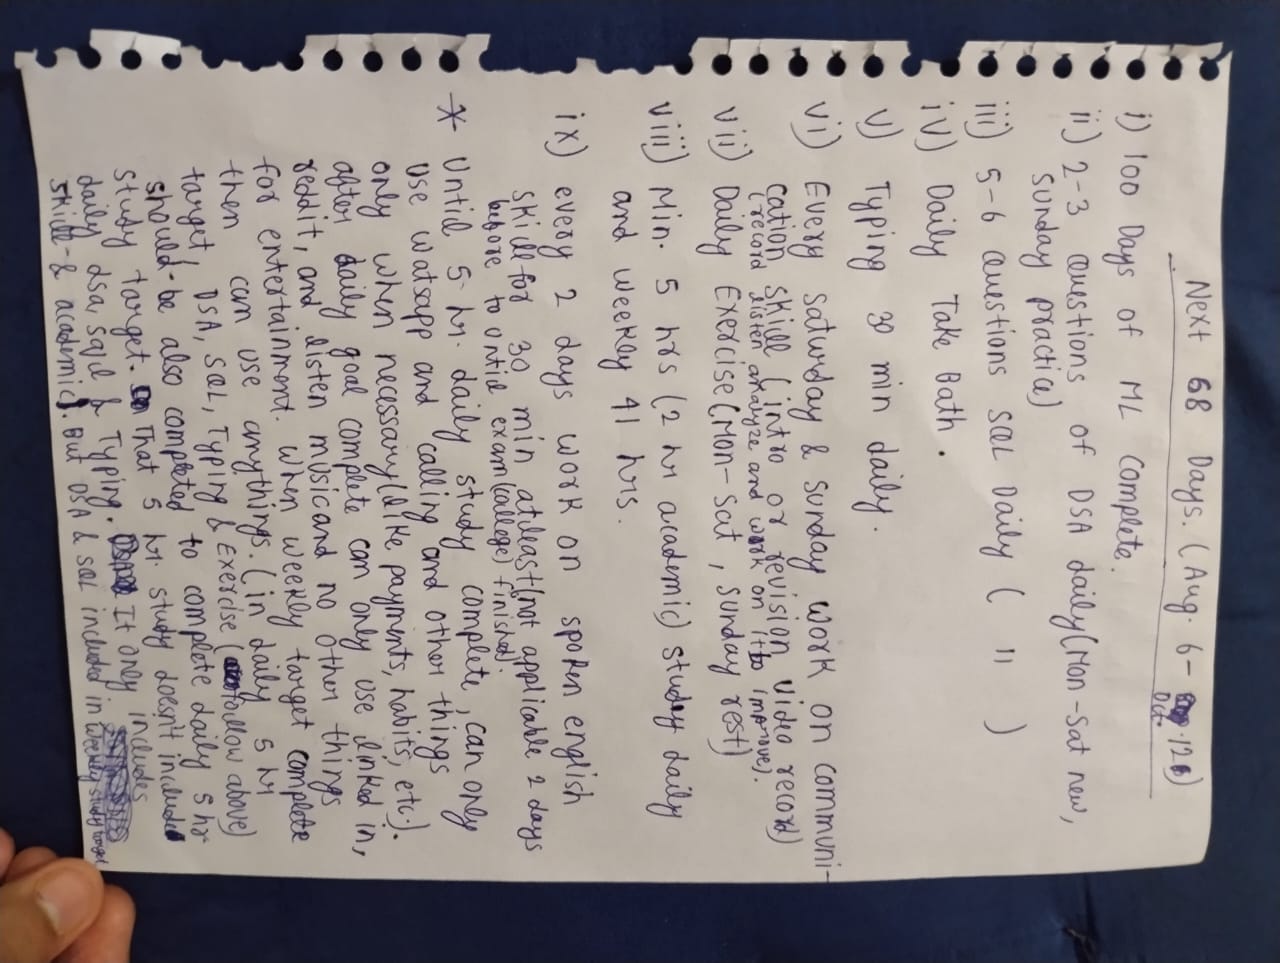 Next 68 Days. (Aug. 6- 12)
Oct
i) 100 Days of ML complete.
ii) 2-3 Questions of DSA daily(Mon-Sat new,
Sunday practice)
iii) 5-6 Questions SQL Daily ( " )
iv) Daily Take Bath.
v) Typing 30 min daily.
vi) Every Saturday & Sunday work on communi-
cation skill (intro or revision video record)
(record listen analyze and work on it to improve).
vii) Daily Exercise(Mon-Sat, Sunday rest)
viii) Min. 5 hrs (2 hr academic) study daily
and weekly 41 hrs.
ix) every 2 days work on spoken english
skill for 30 min atleast(not applicable 2 days
before to until exam(college) finished).
* Until 5 hr. daily study complete, can only
use watsapp and calling and other things
only when necessary(like payments, habits, etc.).
after daily goal complete can only use linked in,
reddit, and listen music and no other things
for entertainment. when weekly target complete
then can use anythings. (in daily 5 hr
target, DSA, SQL, Typing & Exercise (follow above)
should be also completed to complete daily 5 hr
study target. That 5 hr. study doesn't included
daily dsa, sql & Typing. It only includes
skill & academic). But DSA & SQL included in weekly study target